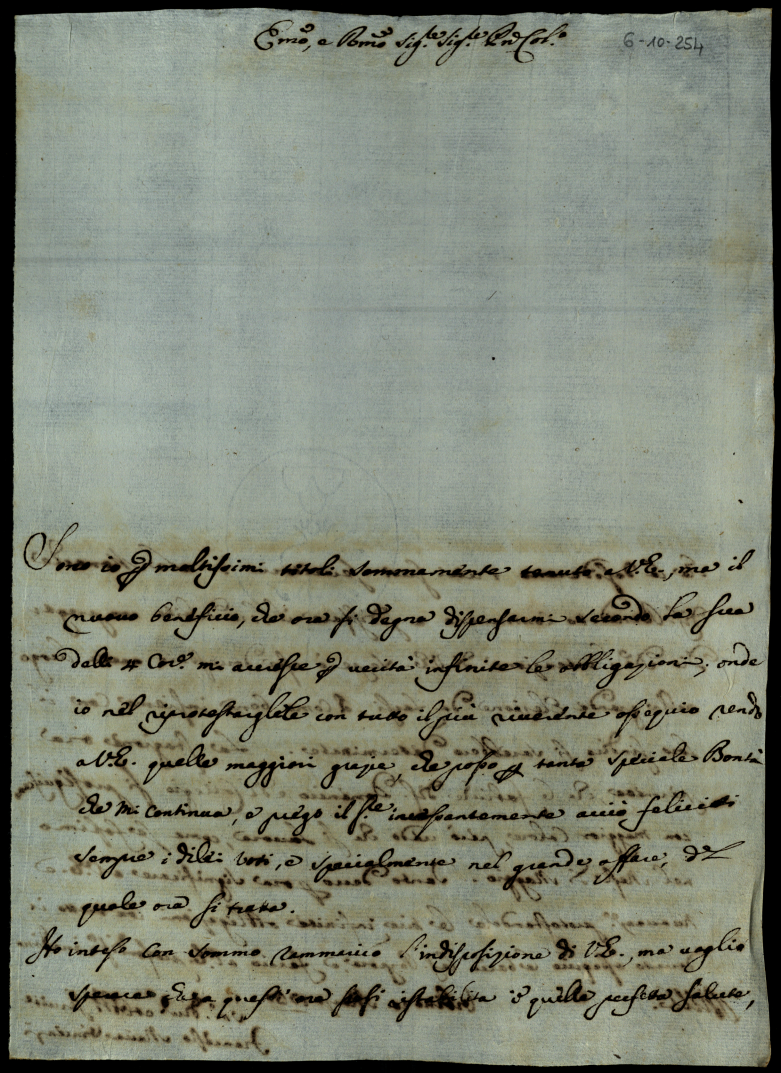 Emo, e Rmo Sig.re Sig.re Pn Col.o
6-10-254
Sono io p moltissimi titoli sommamente tenuto a V.E., ma il
nuovo beneficio, che ora si degna dispensarmi secondo la sua
delli 4 Cor.e mi accresce p verità infinite le obbligazioni; onde
io nel riprotestarglele con tutto il più riverente ossequio rendo
a V.E. quelle maggiori grazie, che posso p tanta speciale Bontà
che mi continua, e prego il S.re incessantemente acciò feliciti
sempre i di lei voti, e specialmente nel grande affare, del
quale ora si tratta.
Ho inteso con sommo rammarico l'indisposizione di V.E., ma voglio
sperare che a quest'ora siasi ristabilita in quella perfetta salute,